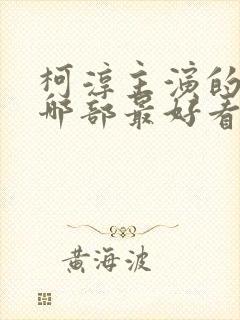 柯淳主演的
哪部最好看
黄海波